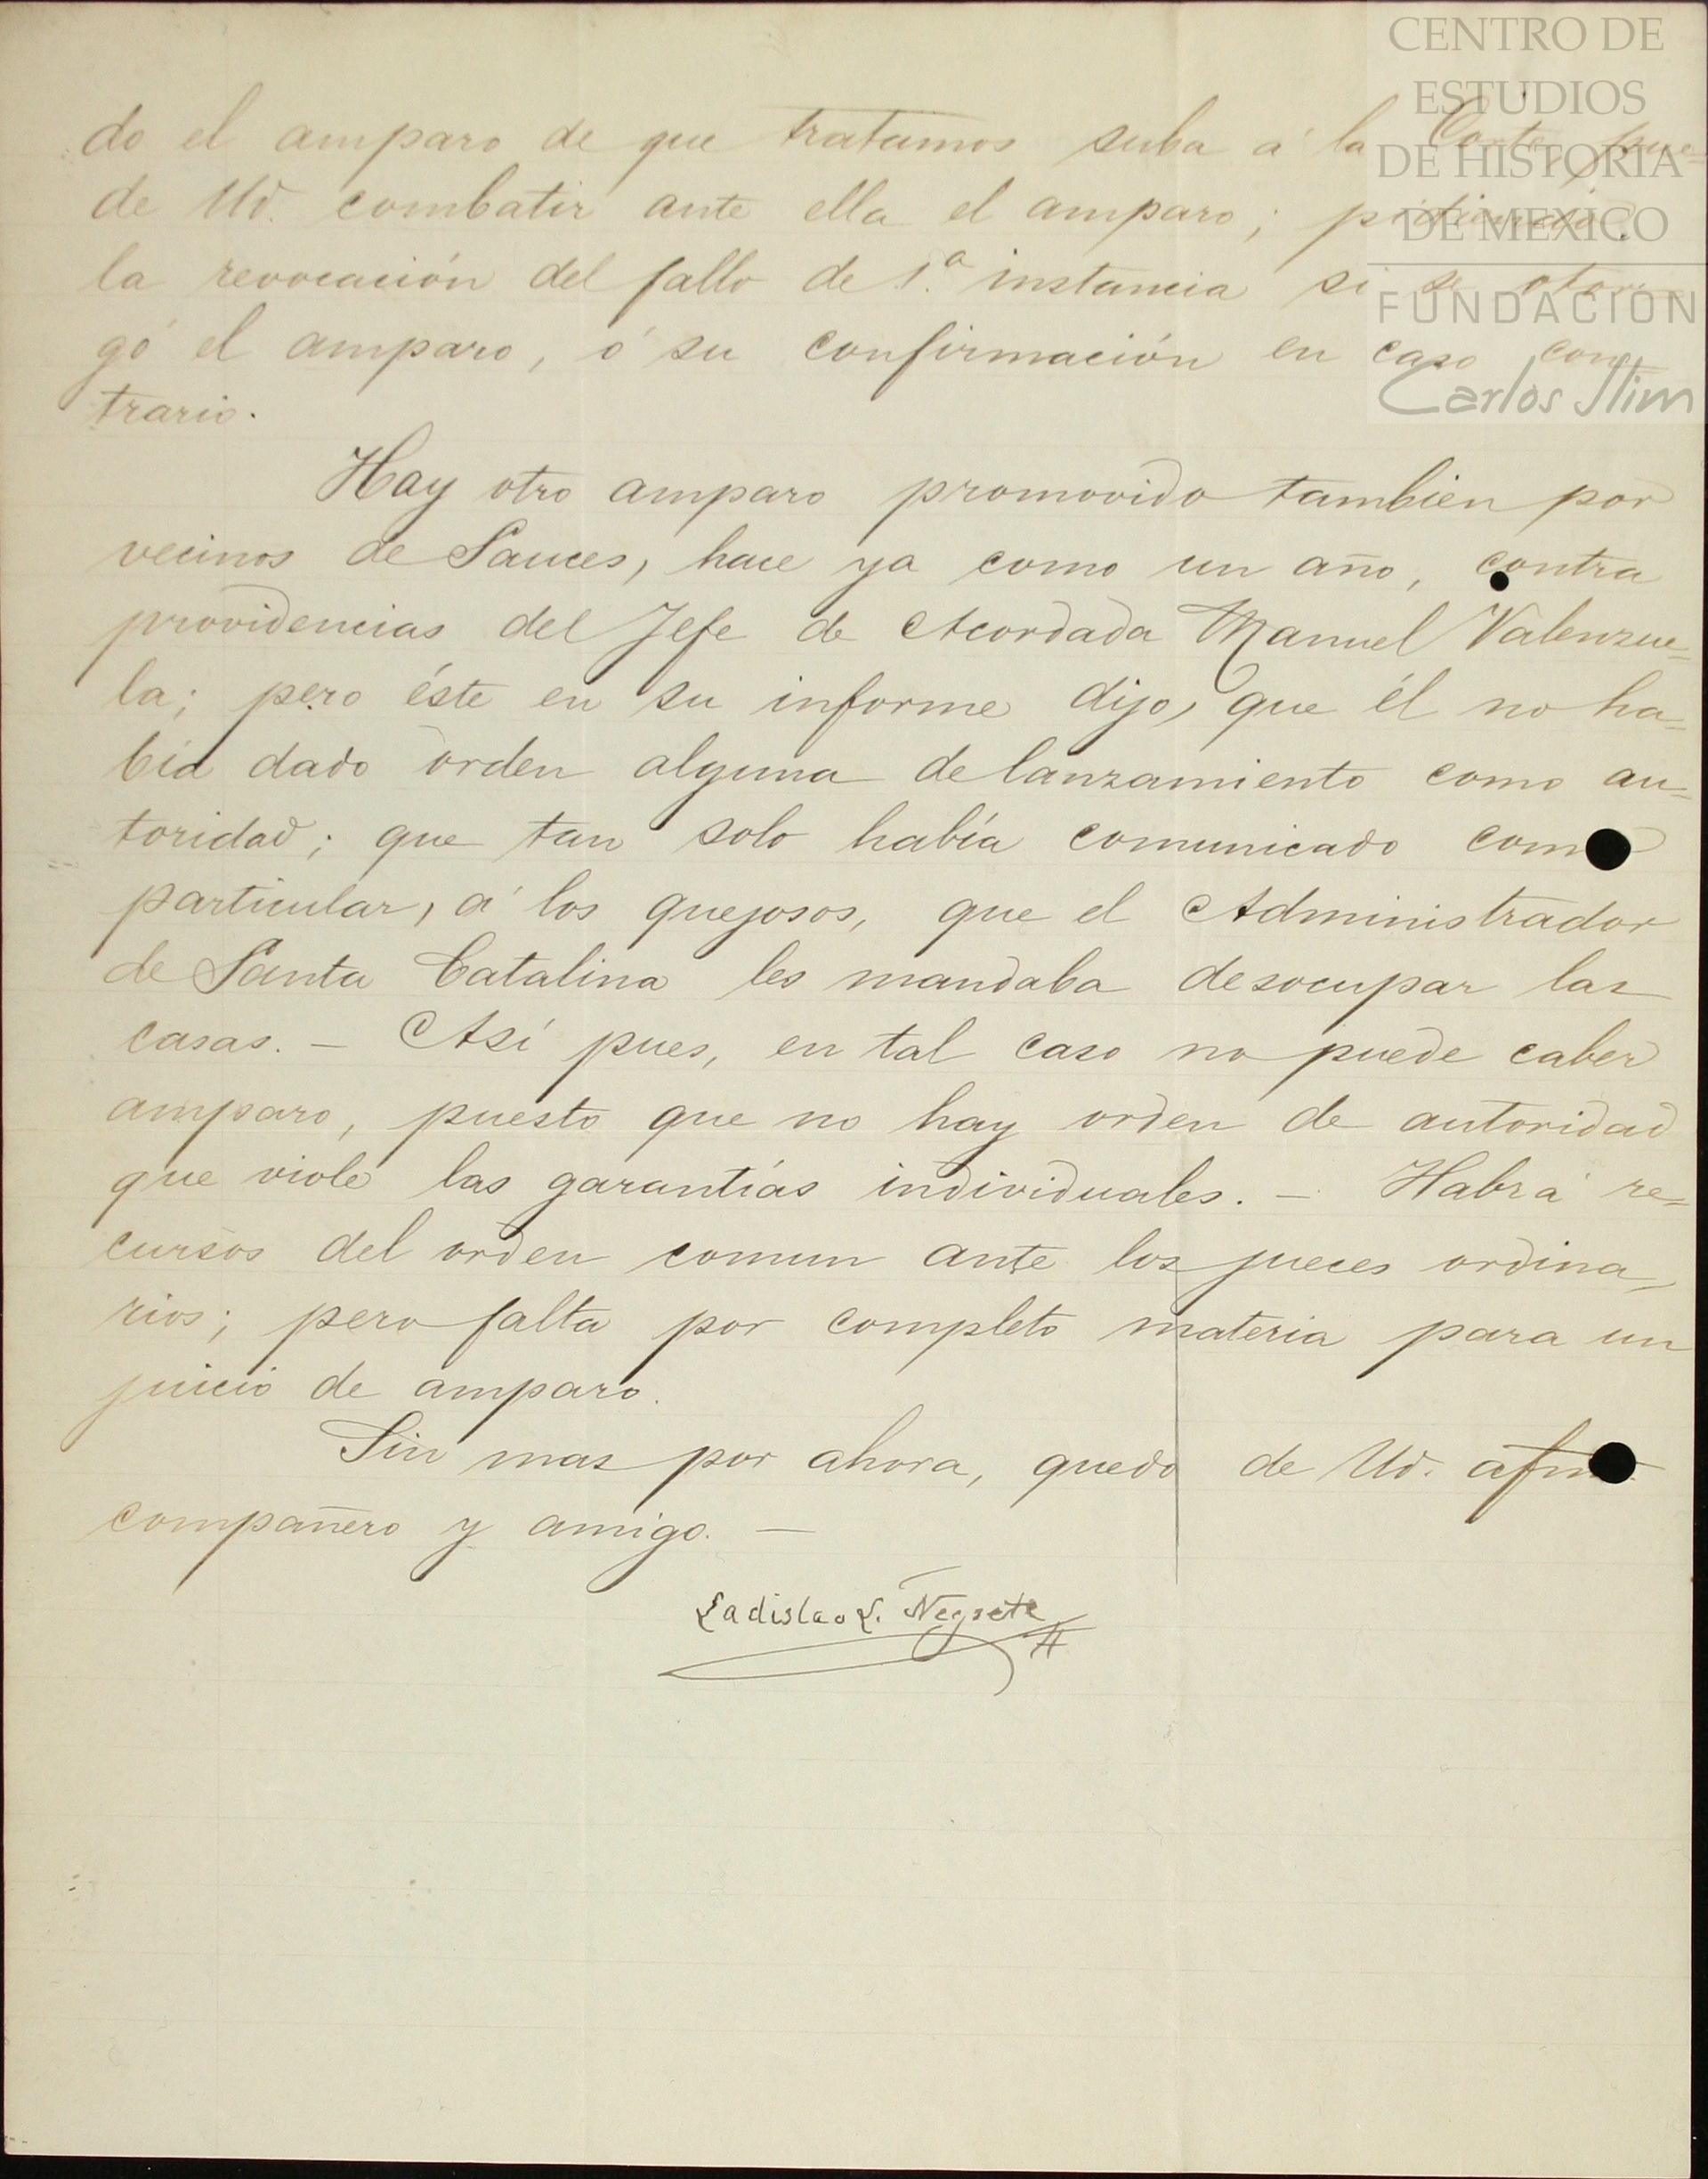 CENTRO DE
ESTUDIOS
DE HISTORIA
DE MEXICO
FUNDACION
Carlos Slim
do el amparo de que tratamos suba á la Corte, pue-
de Ud. combatir ante ella el amparo; pidiendo
la revocación del fallo de 1.ª instancia si se otor-
gó el amparo, ó su confirmación en caso con-
trario.
Hay otro amparo promovido tambien por
vecinos de Sauces, hace ya como un año, contra
providencias del Jefe de Acordada Manuel Valenzue-
la; pero éste en su informe dijo, que él no ha-
bía dado orden alguna de lanzamiento como au-
toridad; que tan solo había comunicado como
particular, á los quejosos, que el Administrador
de Santa Catalina les mandaba desocupar las
casas. — Así pues, en tal caso no puede caber
amparo, puesto que no hay orden de autoridad
que viole las garantías individuales. — Habrá re-
cursos del orden comun ante los jueces ordina-
rios; pero falta por completo materia para un
juicio de amparo.
Sin mas por ahora, quedo de Ud. afmo.
compañero y amigo. —
Ladislao L. Negrete